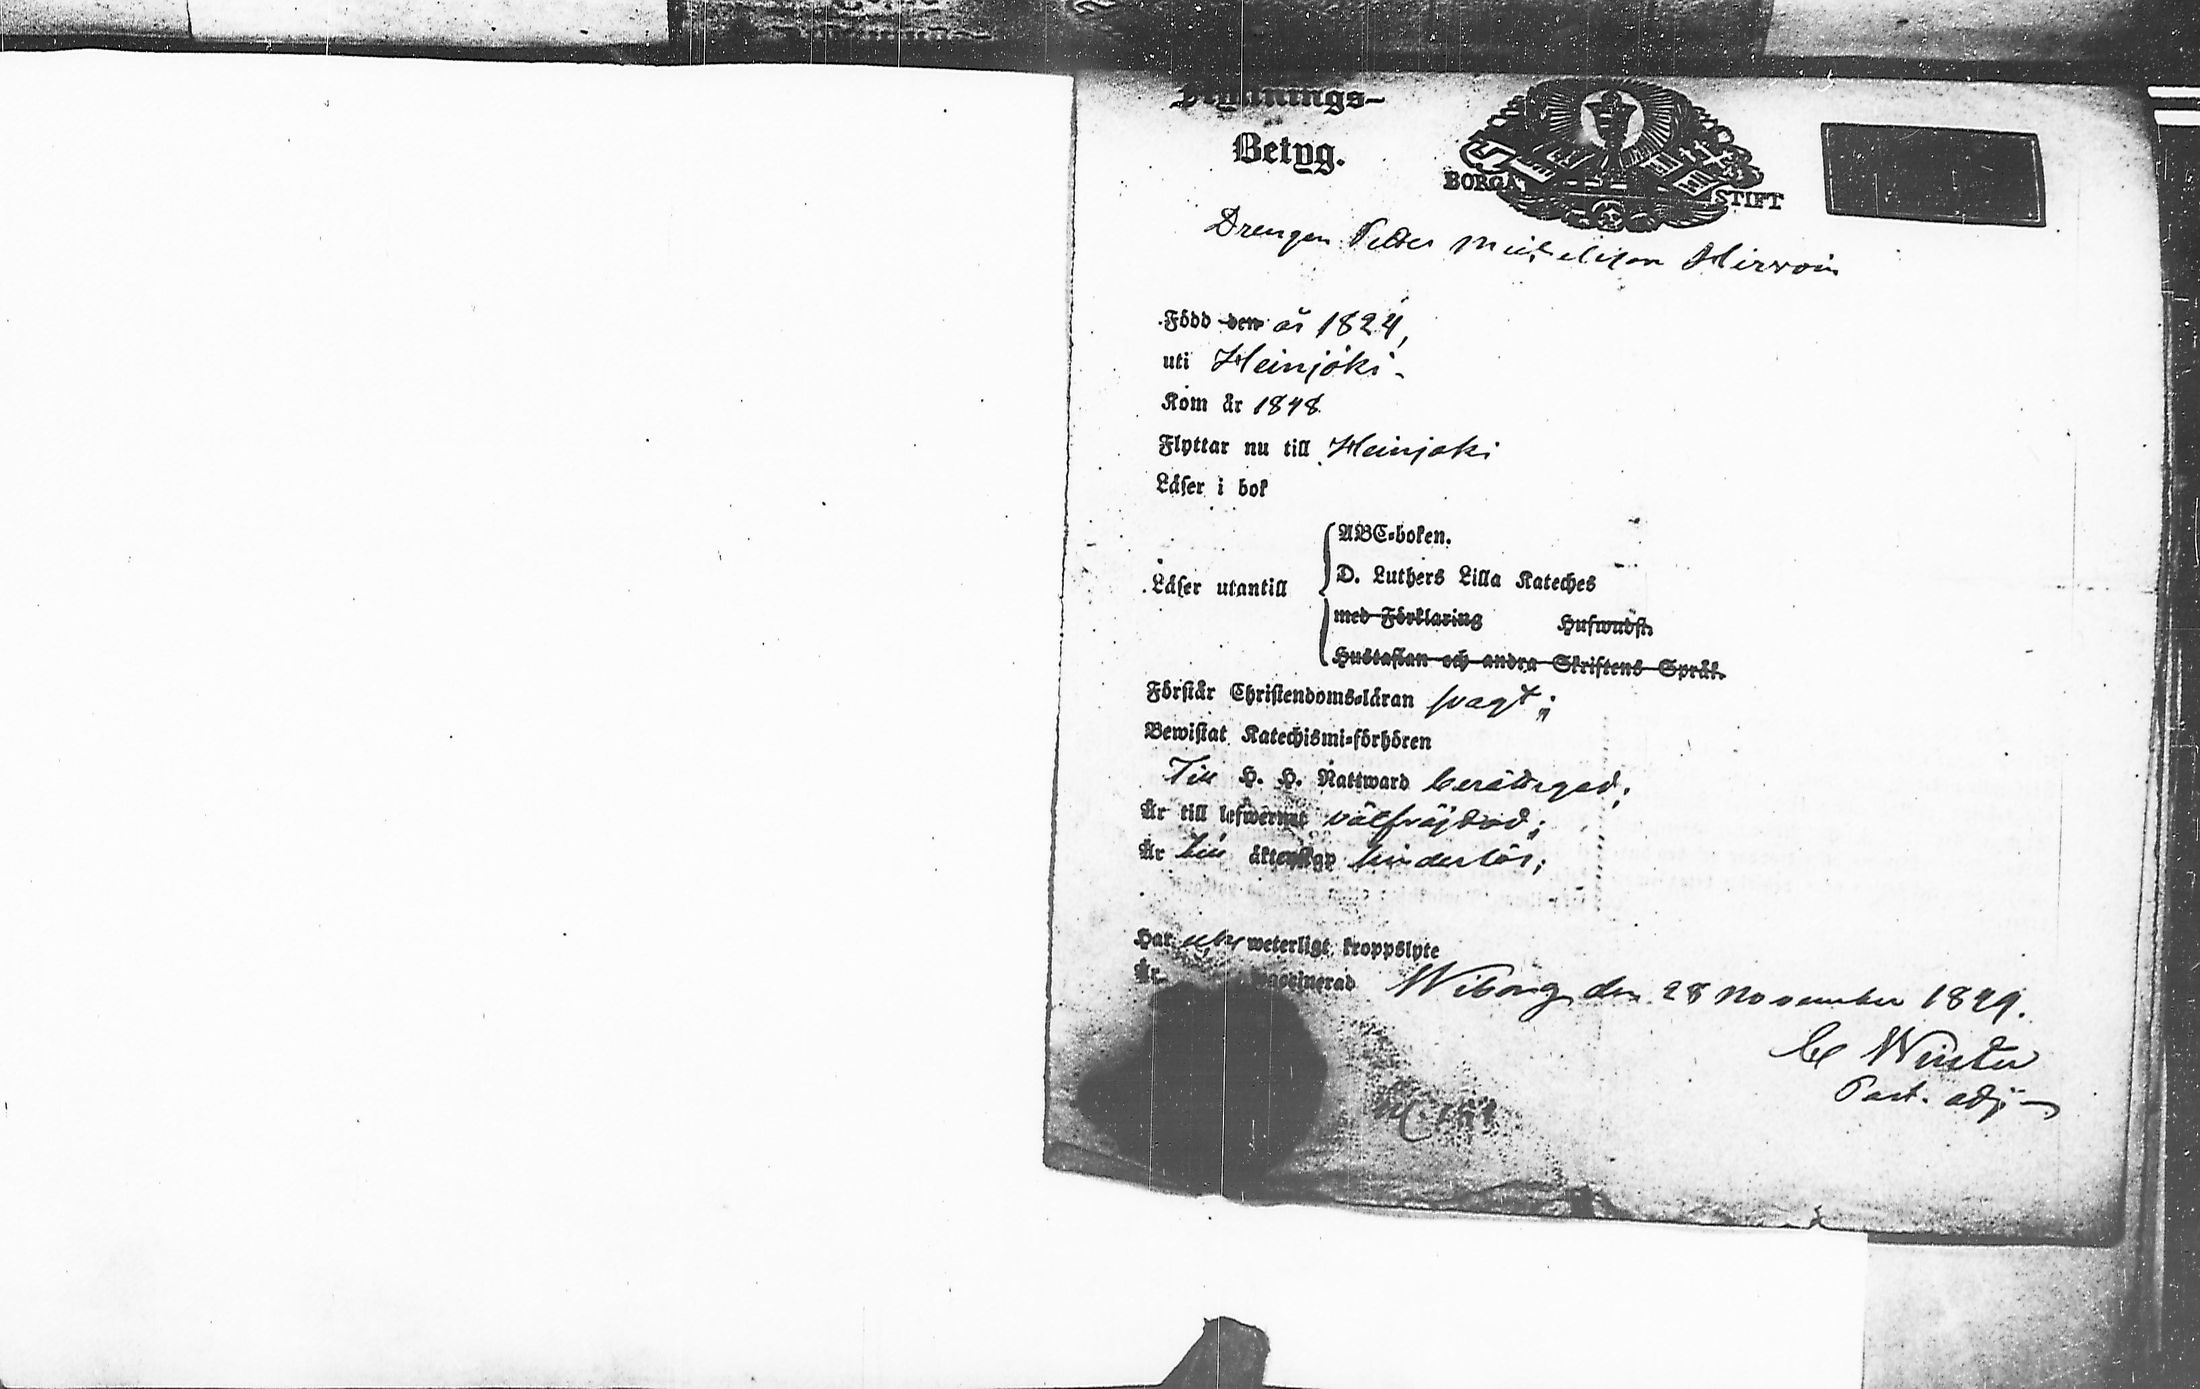 Flyttnings-
Betyg.
BORGÅ STIFT
Drengen Petter Michelsson Hirvoin
Född den år 1824,
uti Heinjoki
Kom år 1848
Flyttar nu till Heinjoki
Läser i bok
ABC-boken.
Läser utantill D. Luthers Lilla Kateches
med Förklaring Hufwudst.
Hustaflan och andra Skriftens Språk.
Förstår Christendoms-läran svagt;
Bewistat Katechismi-förhören
Till H. H. Nattward berättigad;
Är till lefwernet välfräjdad;
Är till äktenskap hinderlös;
Har weterligt kroppslyte
Är waccinerad
Wiborg den 28 November 1849.
Winter
Past. adj.